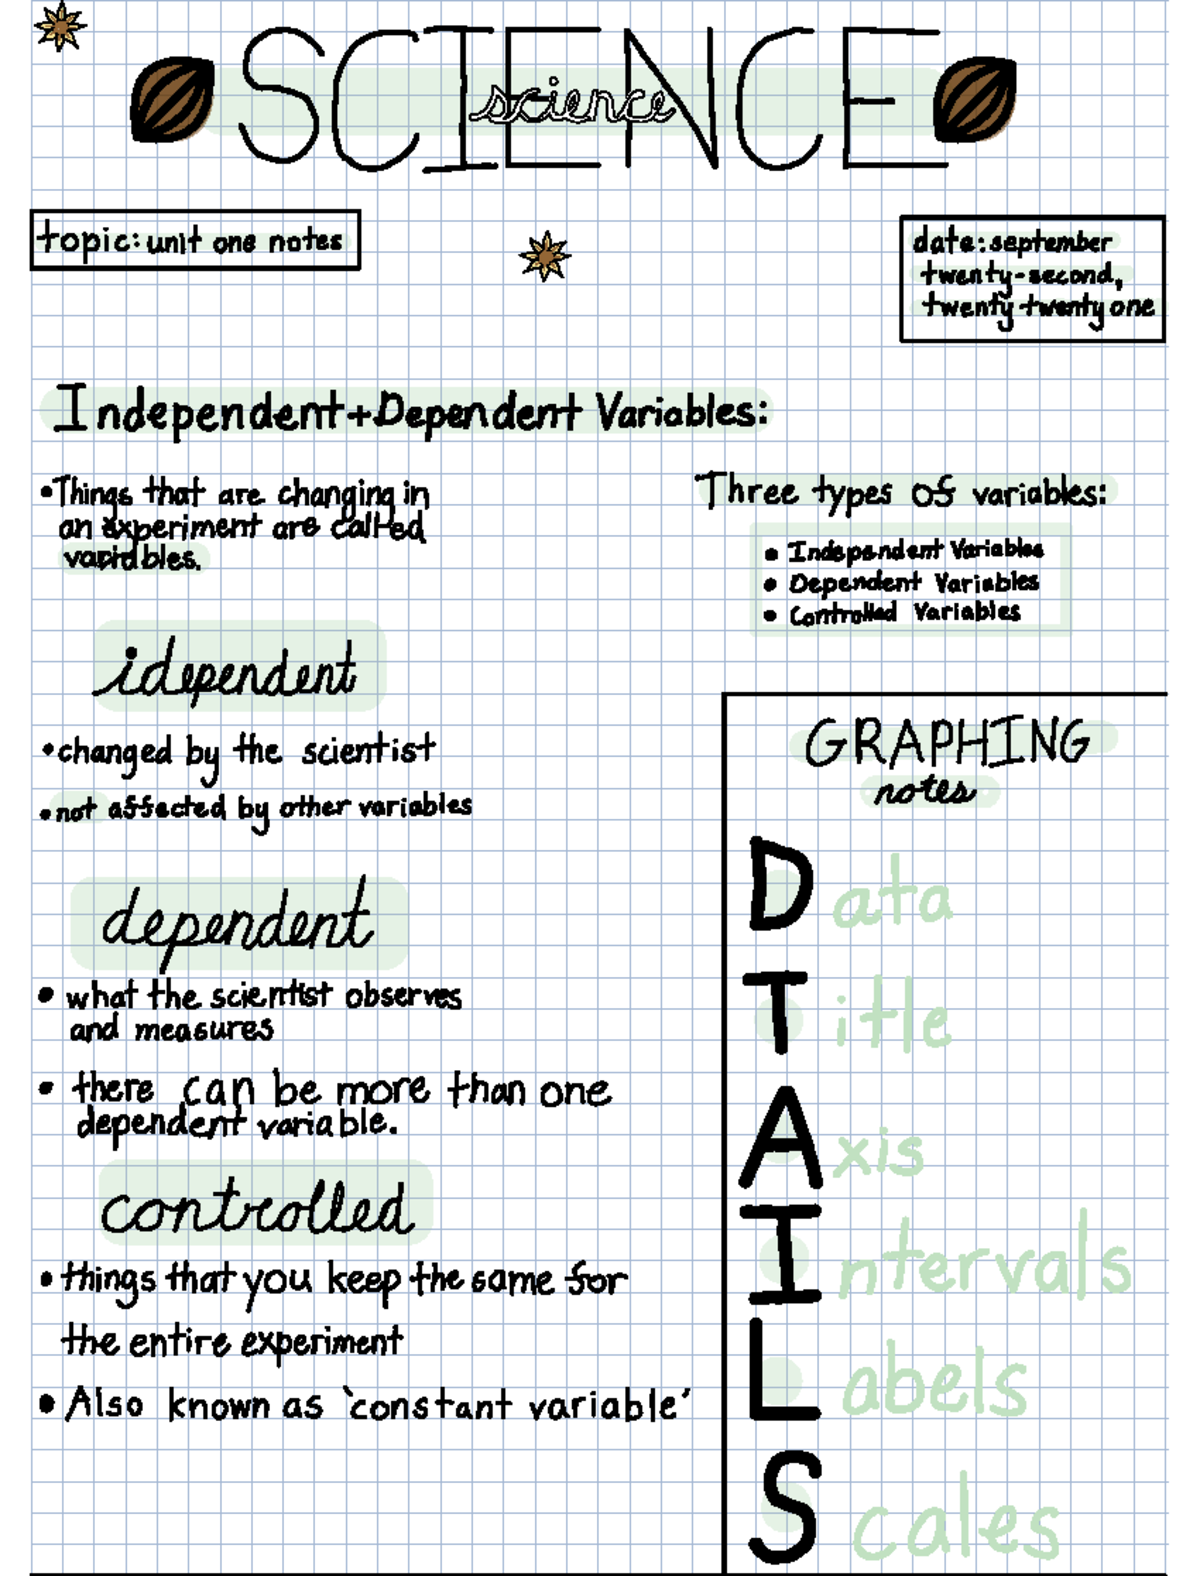 SCIENCE
science
topic: unit one notes
date: september
twenty-second,
twenty twenty one
Independent + Dependent Variables:
•Things that are changing in
an experiment are called
variables.
Three types of variables:
• Independent Variables
• Dependent Variables
• Controlled Variables
idependent
•changed by the scientist
•not affected by other variables
dependent
• what the scientist observes
and measures
• there can be more than one
dependent variable.
controlled
• things that you keep the same for
the entire experiment
• Also known as `constant variable´
GRAPHING
notes
Data
Title
Axis
Intervals
Labels
Scales